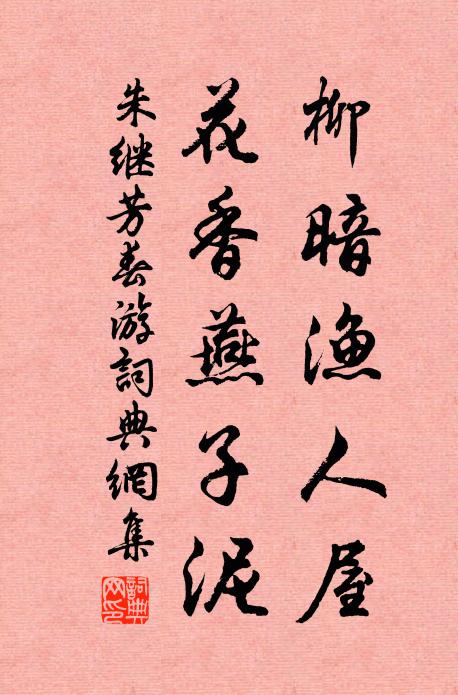 柳暗渔人屋
花香燕子泥
朱继芳春游詞典網集
詞典網印